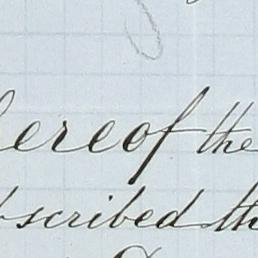 hereof the
bscribed th